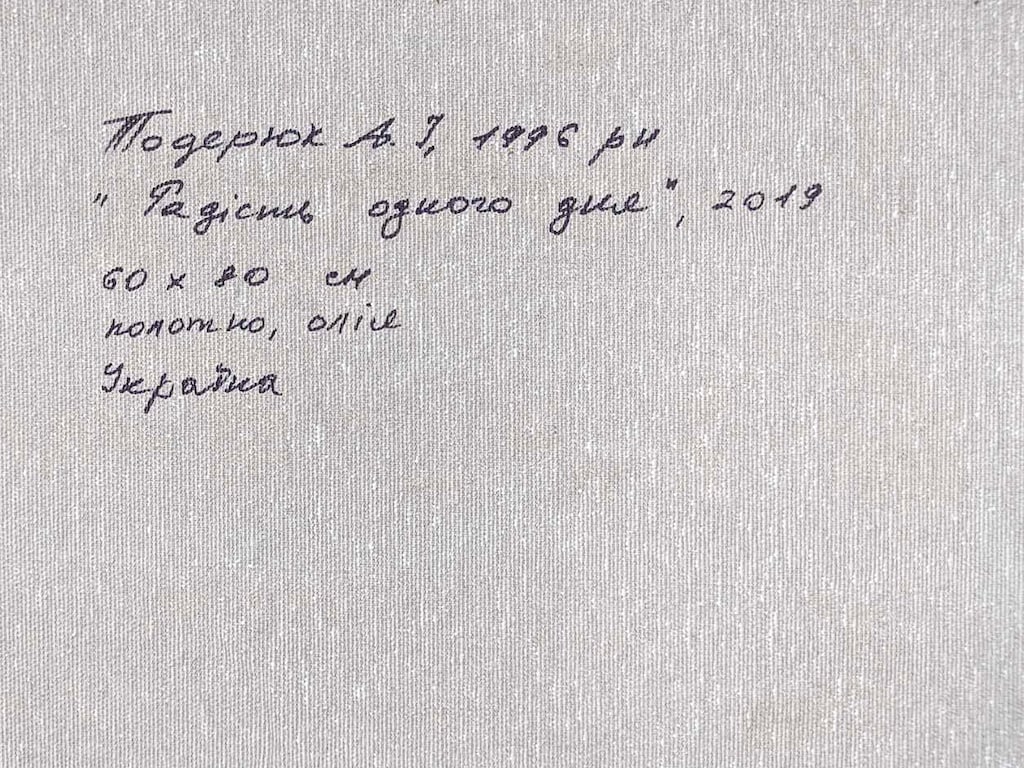 Тодерюк А. І, 1996 рн
" Радість одного дня", 2019
60 х 80 см
полотно, олія
Україна